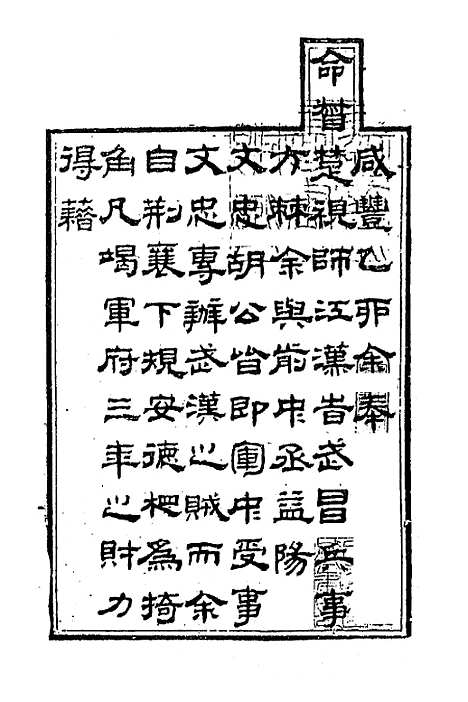 咸豐乙卯余奉
命督楚視師江漢旹武昌兵事
方棘余與前中丞益陽
文忠胡公皆即軍中受事
文忠專辦武漢之賊而余
自荆襄下規安德柶為掎
角凡竭軍府三年之財力
得藉